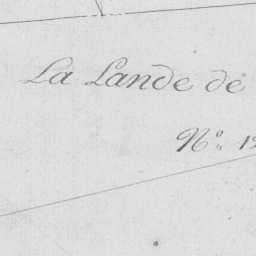 La Lande de
N.o 15